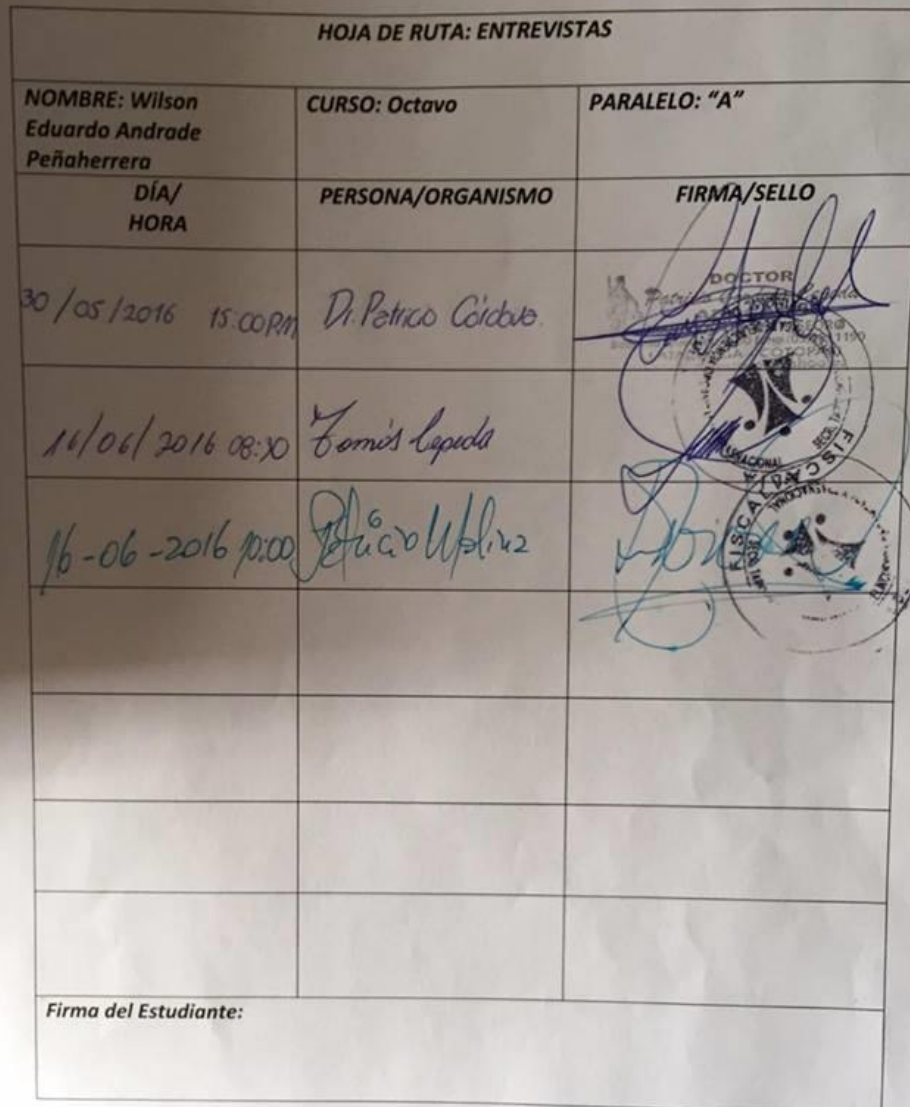 HOJA DE RUTA: ENTREVISTAS
NOMBRE: Wilson
Eduardo Andrade
Peñaherrera
CURSO: Octavo
PARALELO: "A"
DÍA/
HORA
PERSONA/ORGANISMO
FIRMA/SELLO
30/05/2016 15:00PM
Dr. Patricio Córdova
DOCTOR
16/06/2016 08:30
Tomás Cepeda
FISCALÍA
16-06-2016 10:00
Patricio Molina
FISCALÍA
Firma del Estudiante: